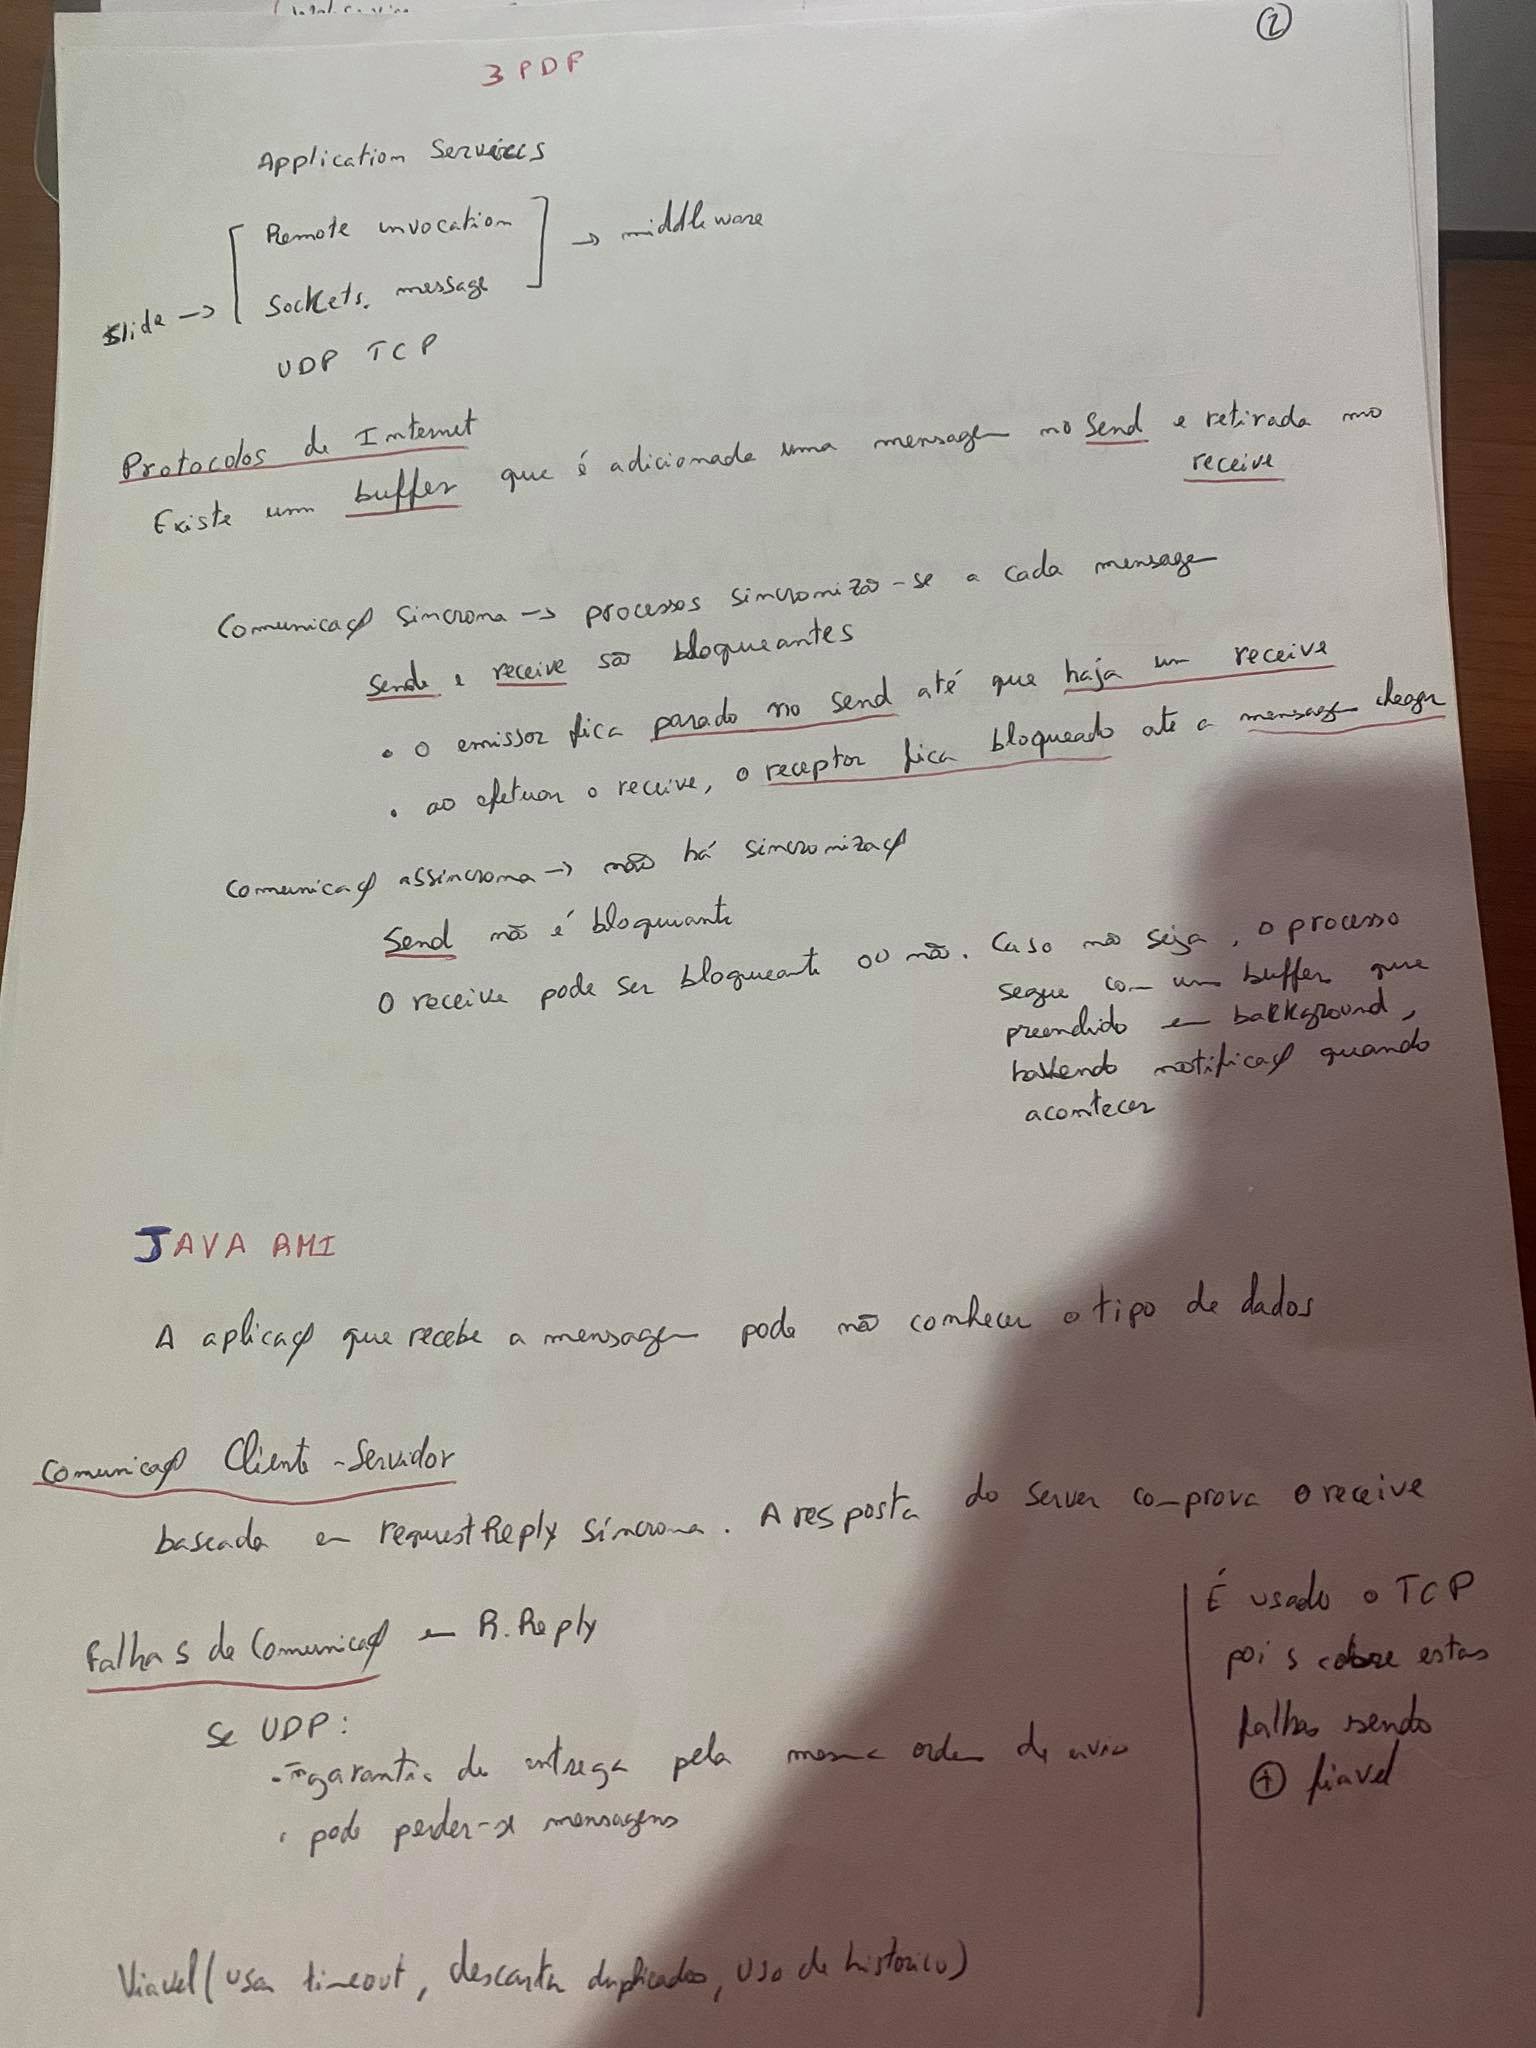 2
3 PDF
Application Services
Remote invocation
→ middleware
Slide →
Sockets. message
UDP TCP
Protocolos de Internet
Existe um buffer que é adicionada uma mensagem no Send e retirada no
receive
Comunicaçõ sincrona → processos sincronizã-se a cada mensagem
Send e receive são bloqueantes
• o emissor fica parado no send até que haja um receive
• ao efetuar o receive, o receptor fica bloqueado até a mensagem chegar
Comunicaçõ assincrona → não há sincronizaçõ
Send não é bloqueante
O receive pode ser bloqueante ou não. Caso não seja, o processo
segue com um buffer que
preenchido em background,
havendo notificaçõ quando
acontecer
JAVA RMI
A aplicaçõ que recebe a mensagem pode não conhecer o tipo de dados
Comunicaçõ Cliente-Servidor
baseada em requestReply síncrona. A resposta do server comprova o receive
Falhas de Comunicaçõ em R.Reply
Se UDP:
• ñ garantia de entrega pela mesma ordem de envio
• pode perder-se mensagens
É usado o TCP
pois cobre estas
falhas sendo
+ fiavel
Viavel (usar timeout, descarta duplicados, uso de historico)